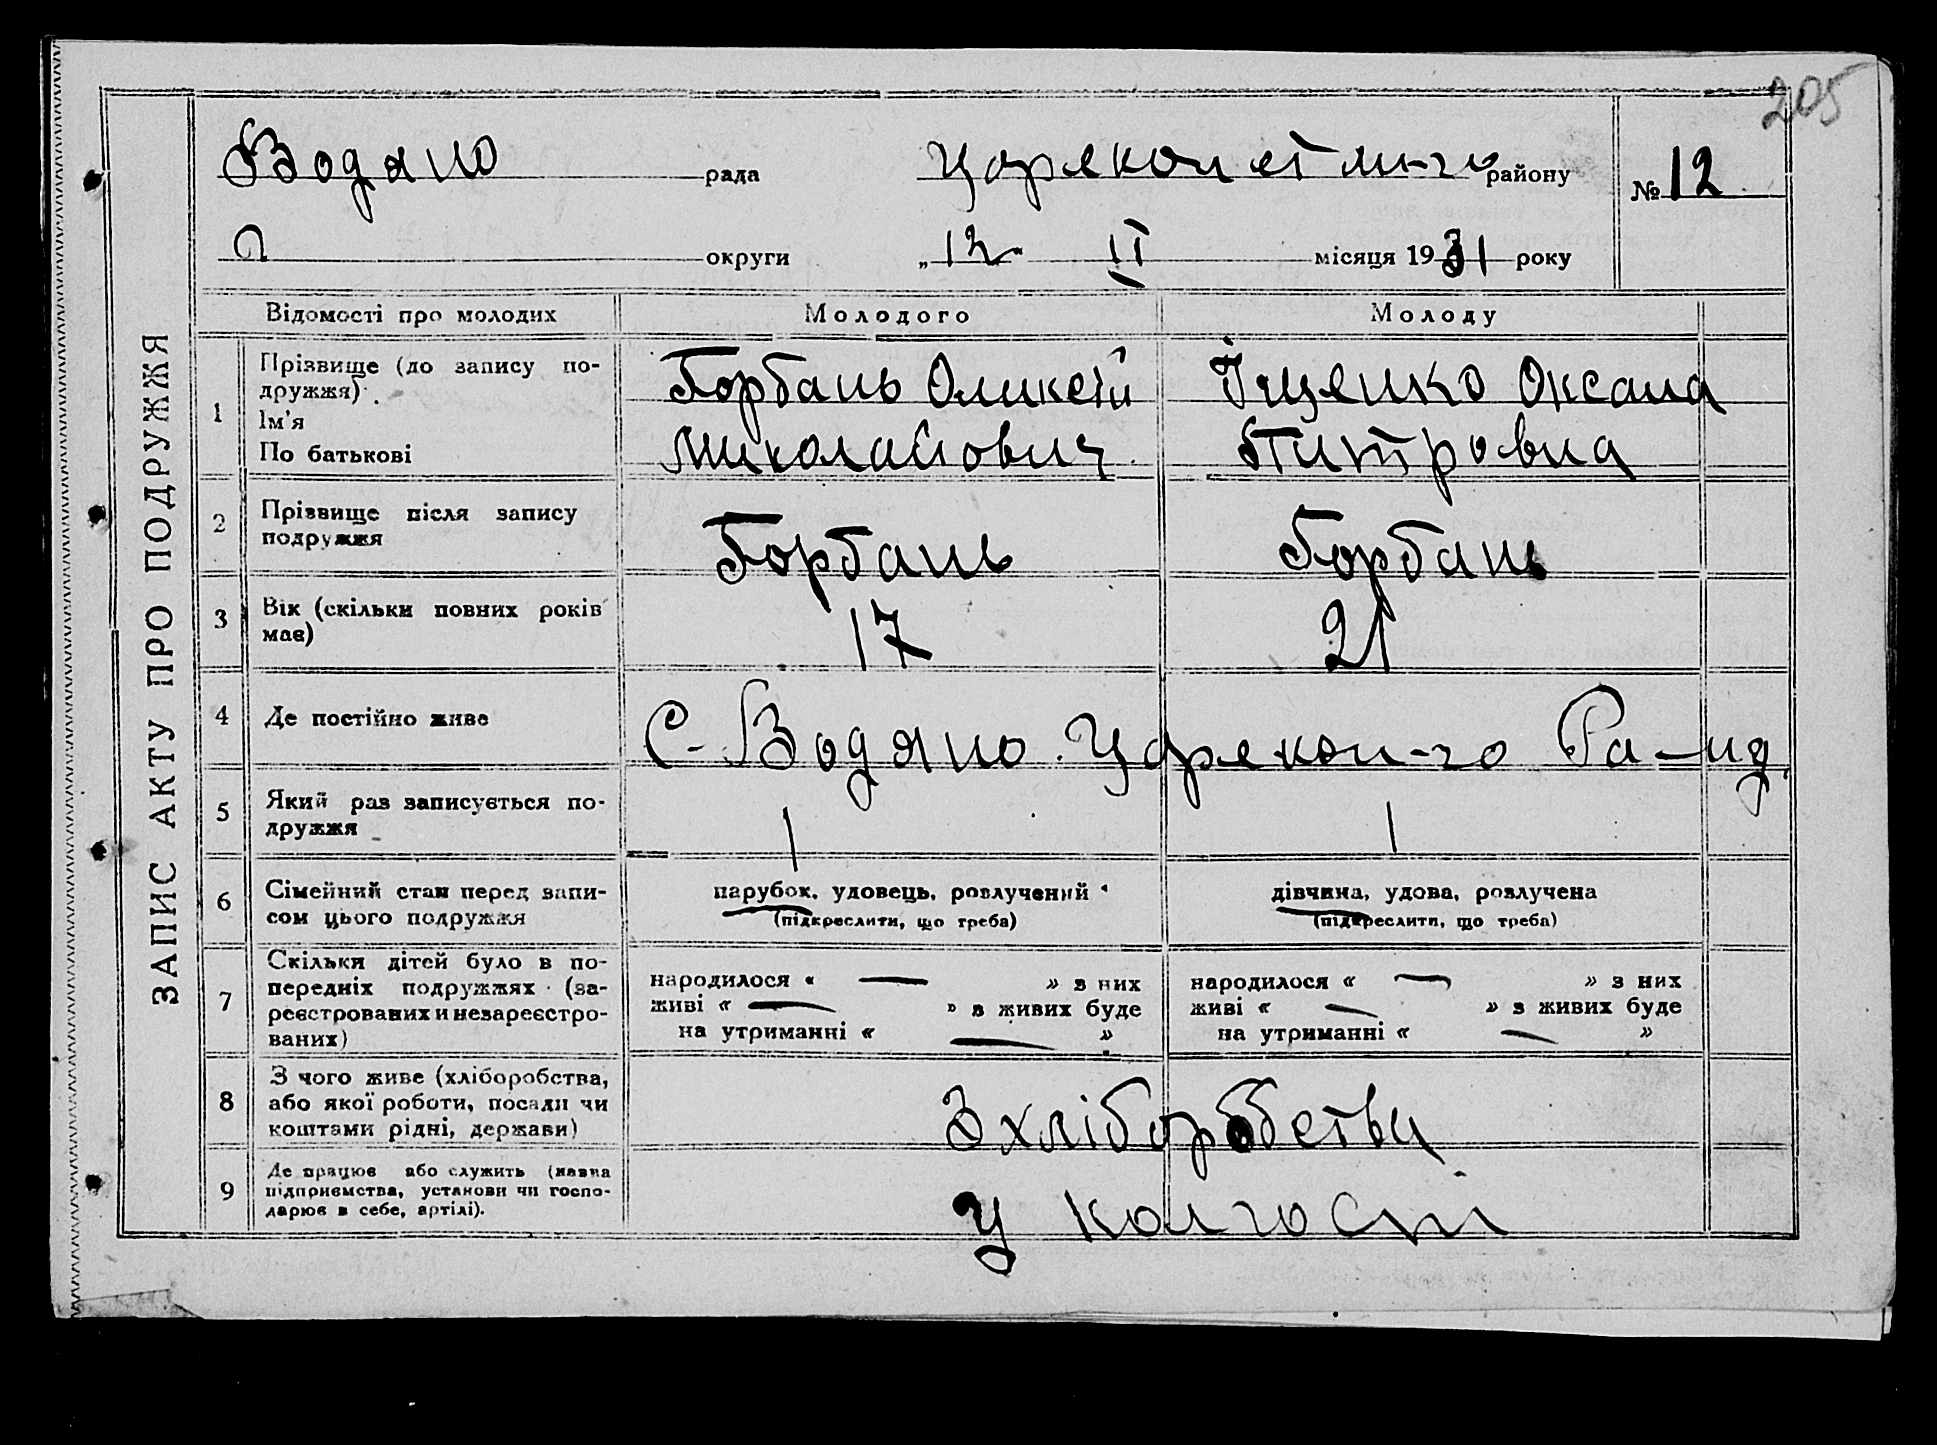 205
Водяно рада Царякон ст ми-го району № 12
округи „12" II місяця 1931 року
ЗАПИС АКТУ ПРО ПОДРУЖЖЯ
Відомості про молодих Молодого Молоду
1 Прізвище (до запису по-
дружжя)
Ім'я
По батькові
Горбань Оликсій
Миколайович
Іщенко Оксана
Питровна
2 Прізвище після запису
подружжя
Горбань Горбань
3 Вік (скільки повних років
має)
17 21
4 Де постійно живе
С-Водяно. Царякон-го Ра-ид
5 Який раз записується по-
дружжя
1 1
6 Сімейний стан перед запи-
сом цього подружжя
парубок, удовець, розлучений
(підкреслити, що треба)
дівчина, удова, розлучена
(підкреслити, що треба)
7 Скільки дітей було в по-
передніх подружжях (за-
реєстрованих и незареєстро-
ваних)
народилося « — » з них
живі « — » з живих буде
на утриманні « — »
народилося « — » з них
живі « — » з живих буде
на утриманні « — »
8 З чого живе (хліборобства,
або якої роботи, посади чи
коштами рідні, держави)
З хліборобства
9 Де працює або служить (назва
підприємства, установи чи госпо-
дарює в себе, артілі).
У колгоспі